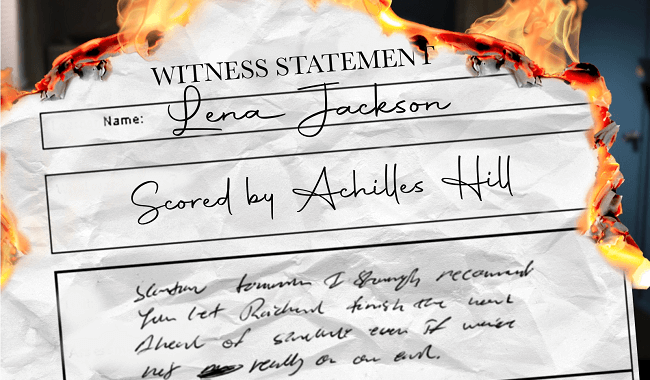 WITNESS STATEMENT
Name: Lena Jackson
Scored by Achilles Hill
tomorrow I strongly recommend
You let Richard finish the work
Ahead of schedule even if we're
not really on an end.